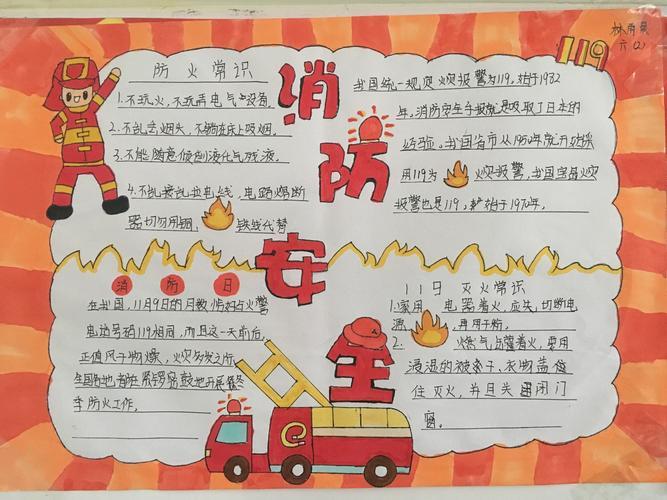 林雨
六(2)
119
消防安全
防火常识
1.不玩火,不玩弄电气设备。
2.不乱丢烟头,不躺在床上吸烟。
3.不能随意倾倒液化气残液。
4.不乱接乱拉电线,电路熔断
器切勿用铜
铁线代替
我国统一规定火灾报警为119,始于1982
年。消防安全手报就是吸取了日本的
经验。我国省市从1950年就开始采
用119为
火灾报警,我国
火灾
报警也是119,
始于1970年。
消防日
在我国,11月9日的月数恰好与火警
电话号码119相同,而且这一天前后,
正值风干物燥,火灾多发之际,
全国各地都在紧锣密鼓地开展
冬
季防火工作。
119灭火常识
1.家用
电器着火,应先切断电
源
再用
2.
燃气
着火,要用
浸湿的被条子、衣物盖
住灭火,并且关闭门
窗。